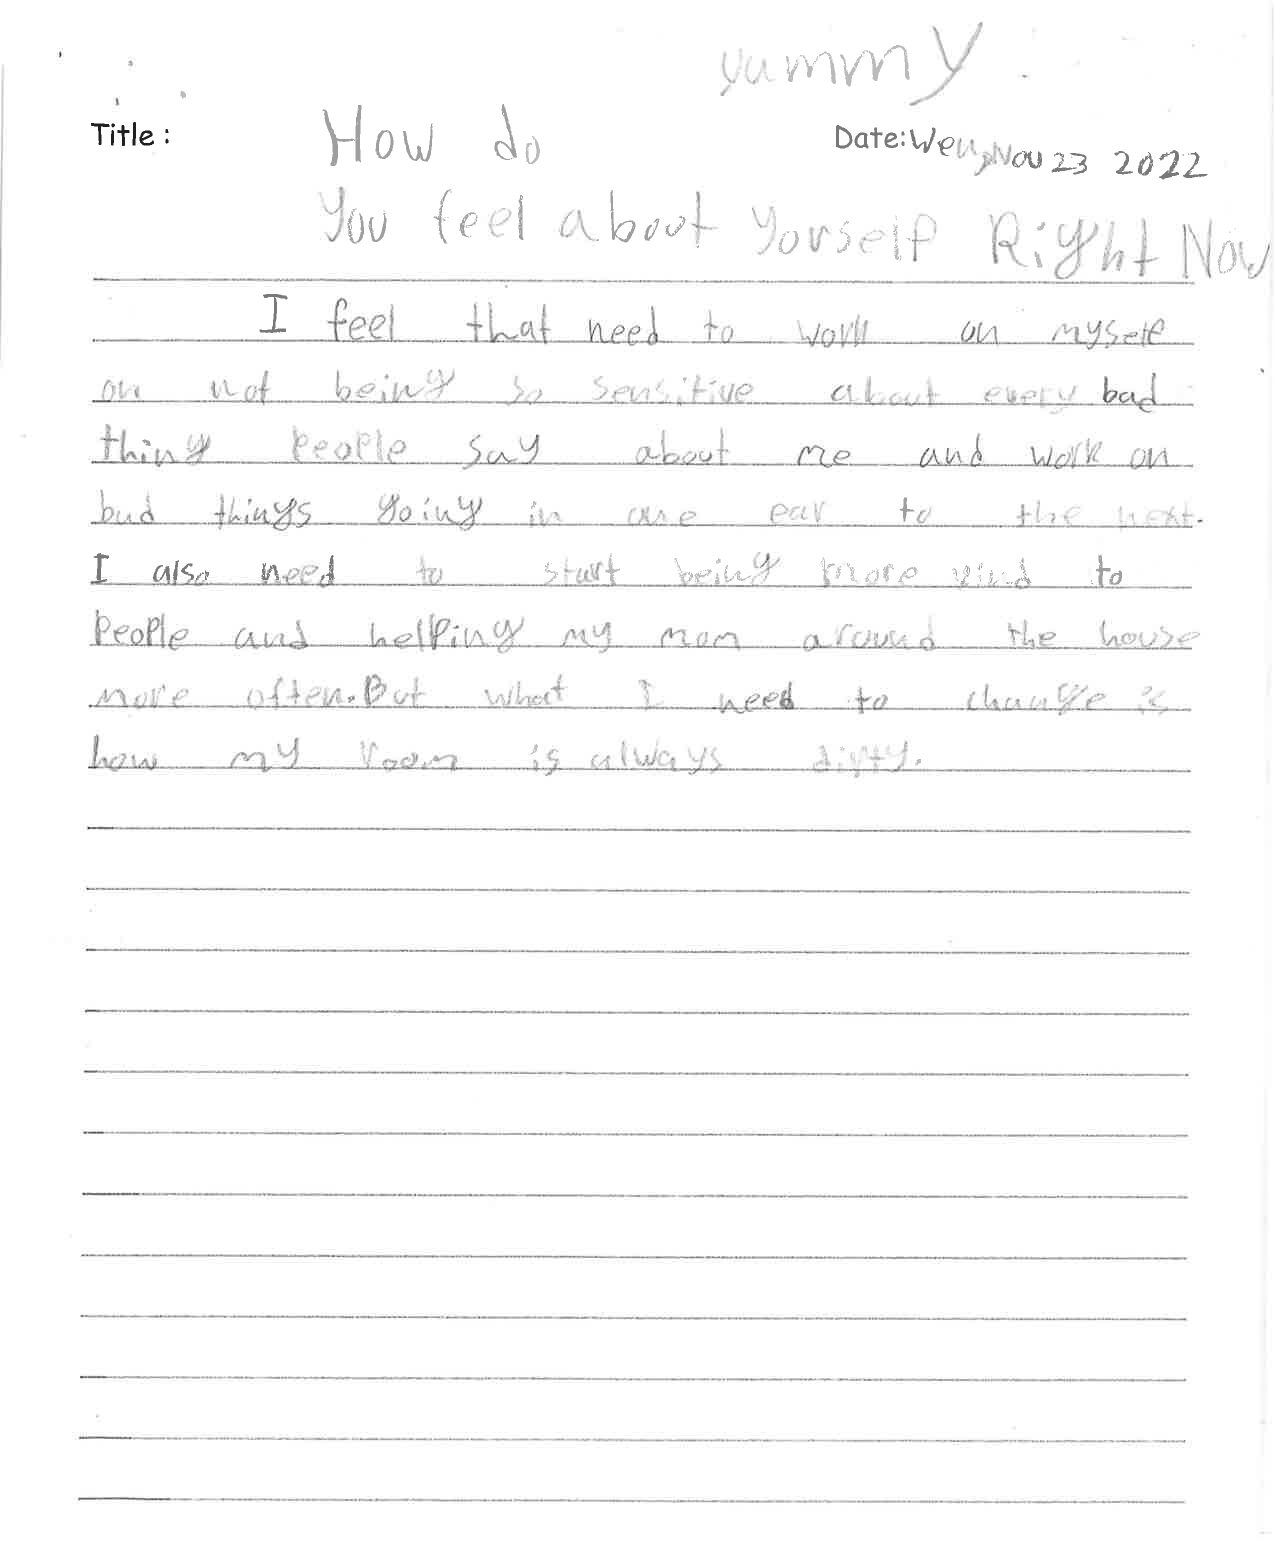 yummy
Title: How do
Date: Wen, Nov 23 2022
You feel about yorself Right Now
I feel that need to work on myself
on not being so sensitive about every bad
thing people say about me and work on
bad things going in one ear to the next.
I also need to start being more kind to
people and helping my mom around the house
more often. But what I need to change is
how my room is always dirty.